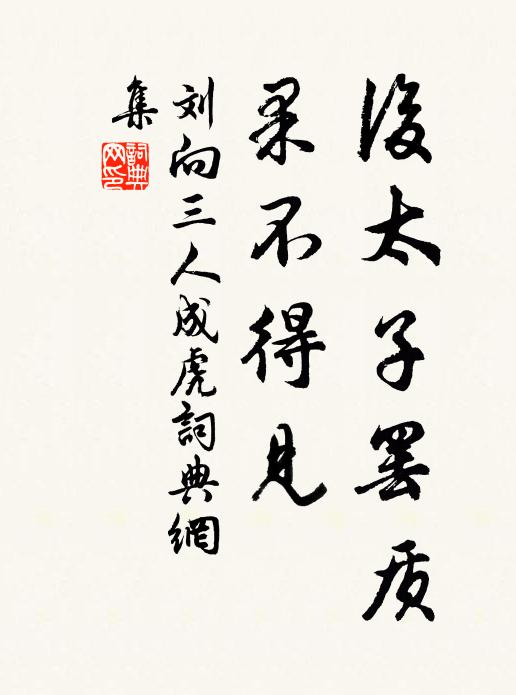 後太子罢质
果不得见
刘向三人成虎詞典網
集
詞典网印